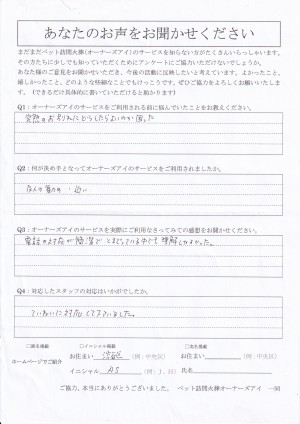 あなたのお声をお聞かせください
まだまだペット訪問火葬(オーナーズアイ)のサービスを知らない方がたくさんいらっしゃいます。
その方たちに少しでも知っていただくためにアンケートにご協力いただけないでしょうか。
あなた様のご意見をお聞かせいただき、今後の活動に反映したいと考えています。よかったこと、
嬉しかったこと、どのような些細なことでもけっこうです。ぜひご協力をよろしくお願いいたしま
す。(できるだけ具体的に書いていただけると助かります)
Q1：オーナーズアイのサービスをご利用される前に悩んでいたことをお教えください。
突然のお別れにどうしたらよいのか困った
Q2：何が決め手となってオーナーズアイのサービスをご利用されましたか。
近い
Q3：オーナーズアイのサービスを実際にご利用なさってみての感想をお聞かせください。
電話の対応が簡潔で
Q4：対応したスタッフの対応はいかがでしたか。
ていねいに対応してくださいました。
□匿名掲載 □イニシャル掲載 □実名掲載
ホームページでご紹介 お住まい 渋谷区 (例：中央区) お住まい (例：中央区)
イニシャル A.S (例：J．H) 氏名
ご協力、本当にありがとうございました。 ペット訪問火葬オーナーズアイ 一同